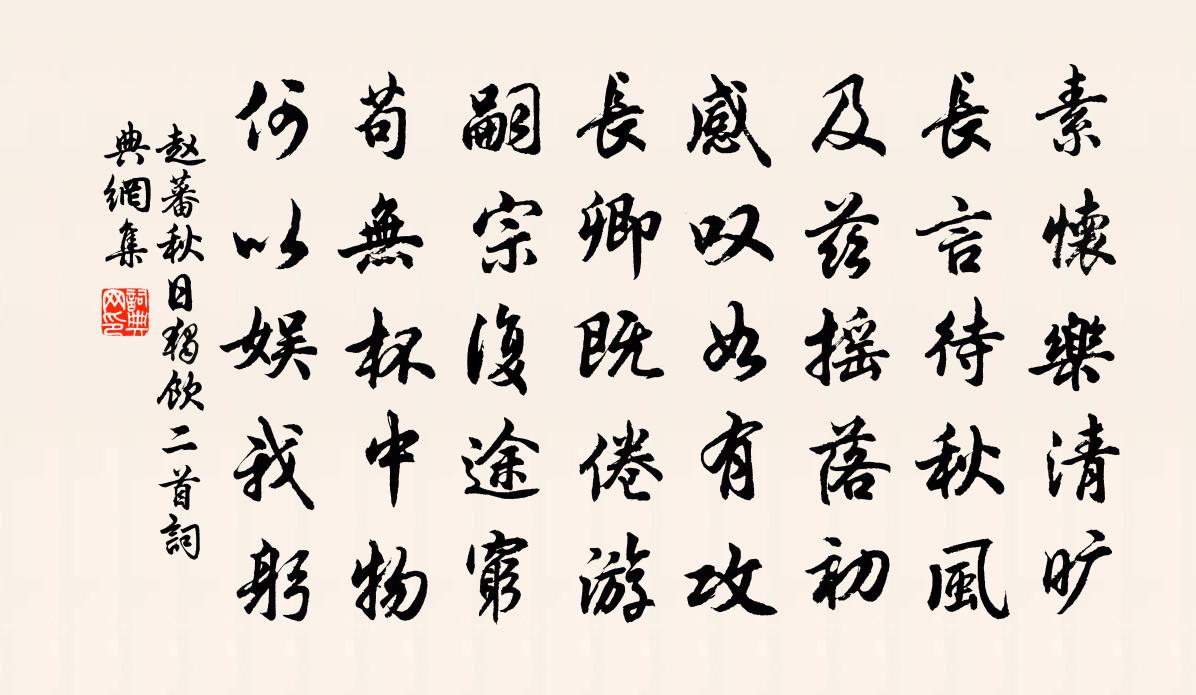 素懷樂清旷
長言待秋風
及茲摇落初
感叹如有攻
長卿既倦游
嗣宗復途窮
苟無杯中物
何以娱我躬
赵蕃秋日獨飲二首詞
典網集
詞典
网印